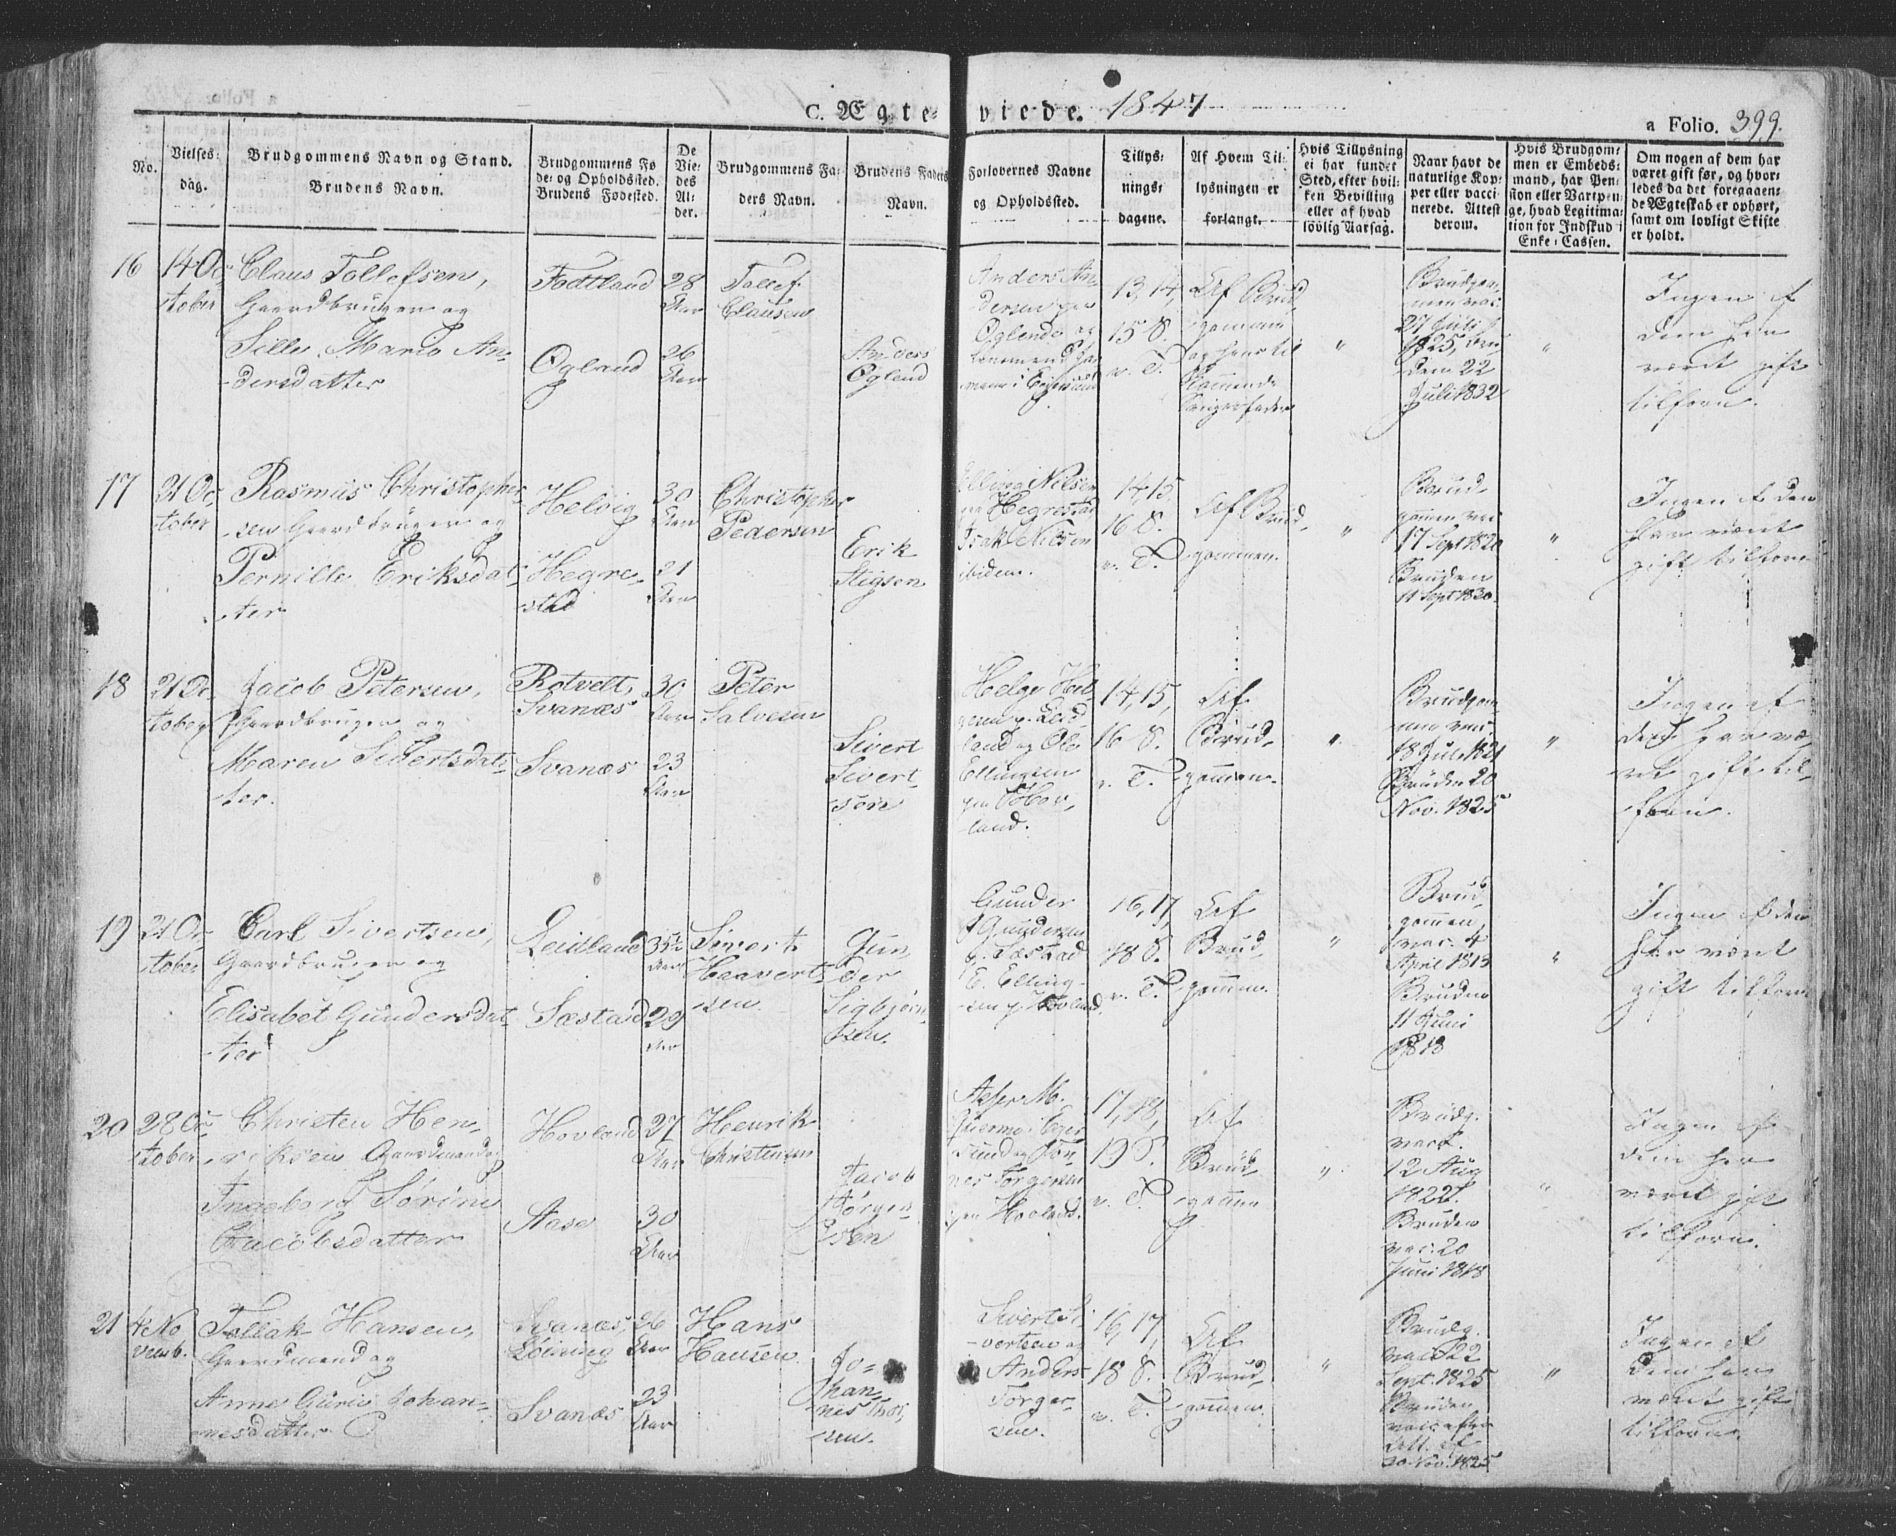 C. Ægte- viede. 1847 a Folio. 399.
No.
Vielses-
dag.
Brudgommens Navn og Stand.
Brudens Navn.
Brudgommens Fø-
de- og Opholdsted.
Brudens Fødested.
De
Vie-
des
Al-
der.
Brudgommens Fa-
ders Navn.
Brudens Faders
Navn.
Forlovernes Navne
og Opholdsted.
Tillys-
nings-
dagene.
Af Hvem Til-
lysningen er
forlangt.
Hvis Tillysning
ei har fundet
Sted, efter hvil-
ken Bevilling
eller af hvad
lovlig Aarsag.
Naar havt de
naturlige Kop-
per eller vacci-
nerede. Attest
derom.
Hvis Brudgom-
men er Embeds-
mand, har Pen-
sion eller Vartpen-
ge, hvad Legitima-
tion for Indskud i
Enke-Cassen.
Om nogen af dem har
været gift før, og hvor-
ledes da det foregaaen-
de Ægteskab er ophørt,
samt om lovligt Skifte
er holdt.
16
14 Oc
tober
Claus Tollefsen,
Gaardbruger og
Sille Marie An-
dersdatter
Todtland
Ogland
28
Aar
26
Aar
Tollef
Clausen
Anders
Oglend
Anders An-
dersen
Oglend og
13, 14,
15 S.
e. T.
Af Brud-
gommen
"
Brudgom-
men vac.
27 Juli
1825,
den 22
Juli 1832
"
Ingen af
dem har
været gift
tilforn.
17
21 Oc
tober
Rasmus Christopher-
sen Gaardbruger og
Pernille Eriksdat-
ter
Helvig
Hegre-
stad
30
Aar
21
Aar
Christopher
Pedersen
Erik
Stigsen
Elling Nilsen
paa Hegrestad
Isak Nilsen
ibidem.
14, 15,
16 S.
e. T.
Af Brud-
gommen.
"
Brud-
gommen vac.
17 Sept 1820
Bruden
11 Sept 1830.
"
Ingen af dem
har været
gift tilforn
18
21 Oc
tober
Jacob Petersen,
Gaardbruger og
Maren Sivertsdat-
ter.
Rotvelt,
Svanæs
Svanæs
30
Aar
23
Aar
Peter
Salvesen
Sivert
Sivert
sen
Helge Hel-
gesen p. Leid-
land og Ole
Ellingsen
paa Hov-
land.
14, 15,
16 S.
e. T.
Af
Brud-
gommen.
"
Brudgom-
men vac.
18 Juli 1821
Bruden 20
Nov. 1825
"
Ingen af
dem har væ-
ret gift til-
forn.
19
21 Oc
tober
Carl Sivertsen,
Gaardbruger og
Elisabet Gundersdat-
ter
Leidland
Sæstad
35½
Aar
29
Aar
Sivert
Haavert-
sen
Gun
der
Sigbjørn
sen.
Gunder
Gundersen
p. Sæstad
E. Elling-
sen p. Hovland.
16, 17,
18 S.
e. T.
Af
Brud-
gommen.
"
Brud-
gommen
vac. 4
April 1813
Bruden
11 Juni
1818
"
Ingen af dem
har været
gift tilforn
20
28 Oc
tober
Christen Hen-
riksen Gaardmand og
Ingeborg Sørine
Jacobsdatter
Hovland
Aase
27
Aar
30
Aar
Henrik
Christensen
Jacob
Jørgen
sen
M.
i Eger
sund og Tøn-
nes Torgersen
paa Hovland.
17, 18,
19 S.
e. T.
Af
Brud-
gommen
"
Brudg.
vac.
12 Aug
1822.
Bruden
vac. 20
Juni 1818
"
Ingen af
dem har
været gift
tilforn.
21
4 No
vemb.
Tollak Hansen,
Gaardmand og
Anne Gurie Johan-
nesdatter
Svanæs,
Svanæs
26
Aar
23
Aar
Hans
Hansen
Jo-
han-
nes
sen.
Sivert Si-
vertsen og
Anders
Torger-
sen.
16, 17,
18 S.
e. T.
Af
Brud-
gommen.
"
Brudg.
vac. 22
Sept. 1825
Bruden
vac. efter
Att. af
20 Nov. 1825
"
Ingen af
dem har
været gift
tilforn.